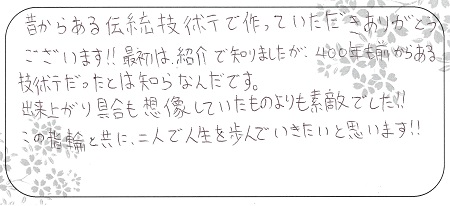 昔からある伝統技術テで作っていただきありがとう
ございます!!最初は、紹介で知りましたが、400年も前からある
技術テだったとは知らなんだです。
出来上がり具合も想像していたものよりも素敵でした!!
この指輪と共に、二人で人生を歩んでいきたいと思います!!